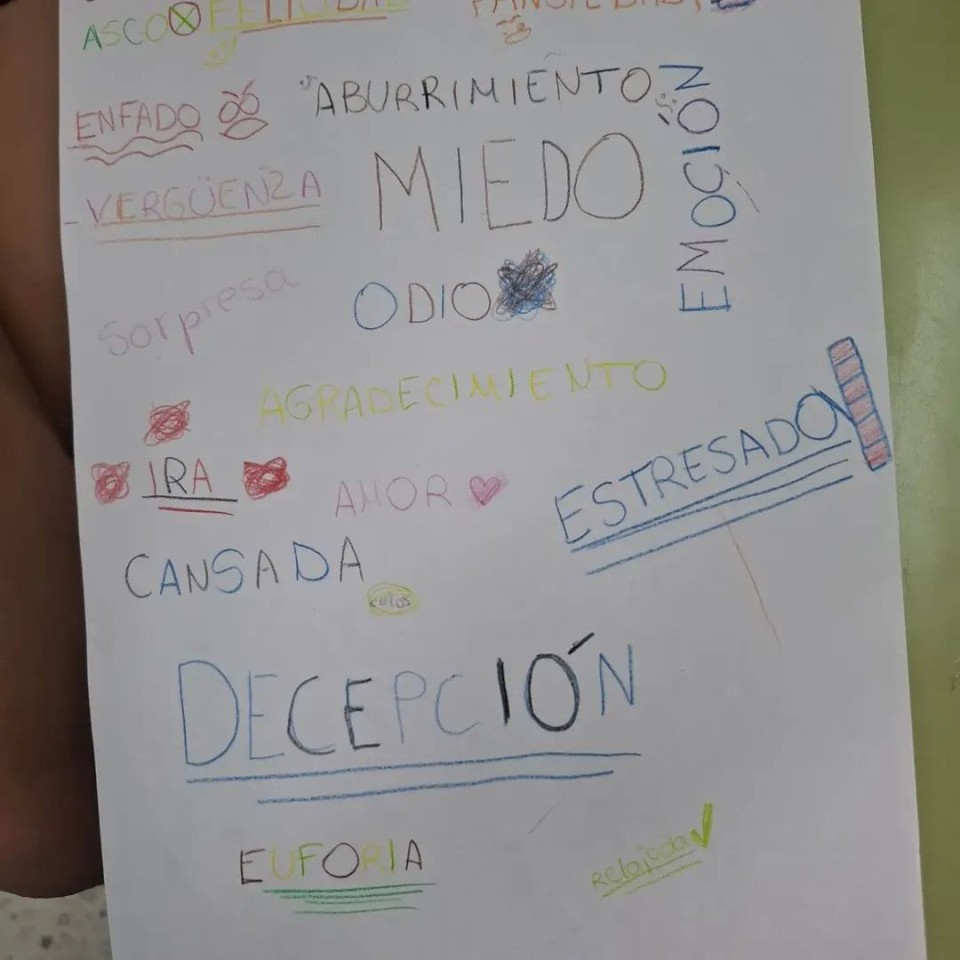 ASCO FELICIDAD
ENFADO
ABURRIMIENTO
EMOCIÓN
VERGÜENZA
MIEDO
Sorpresa
ODIO
AGRADECIMIENTO
IRA
AMOR
ESTRESADO
CANSADA
celos
DECEPCIÓN
EUFORIA
Relajada